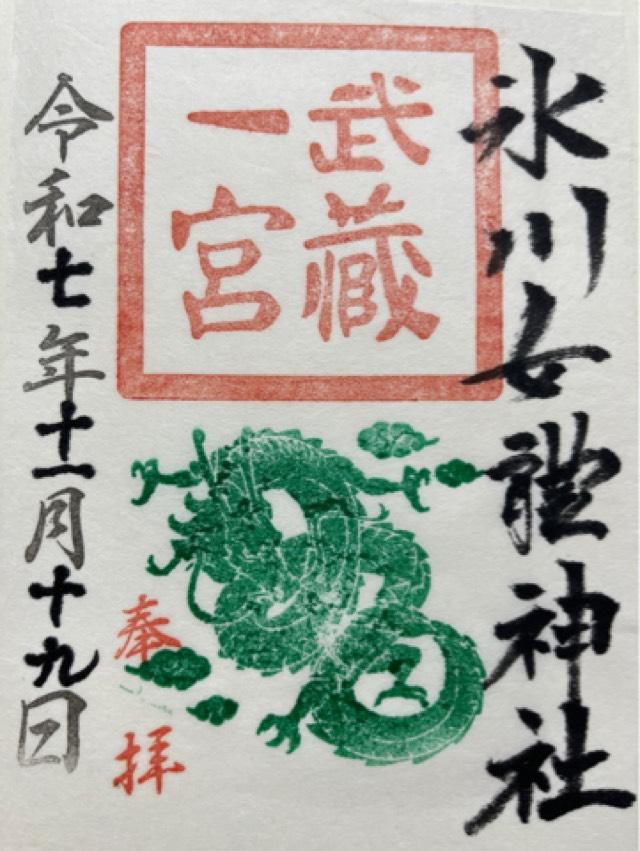 氷川女體神社
武蔵
一宮
奉拝
令和七年十一月十九日